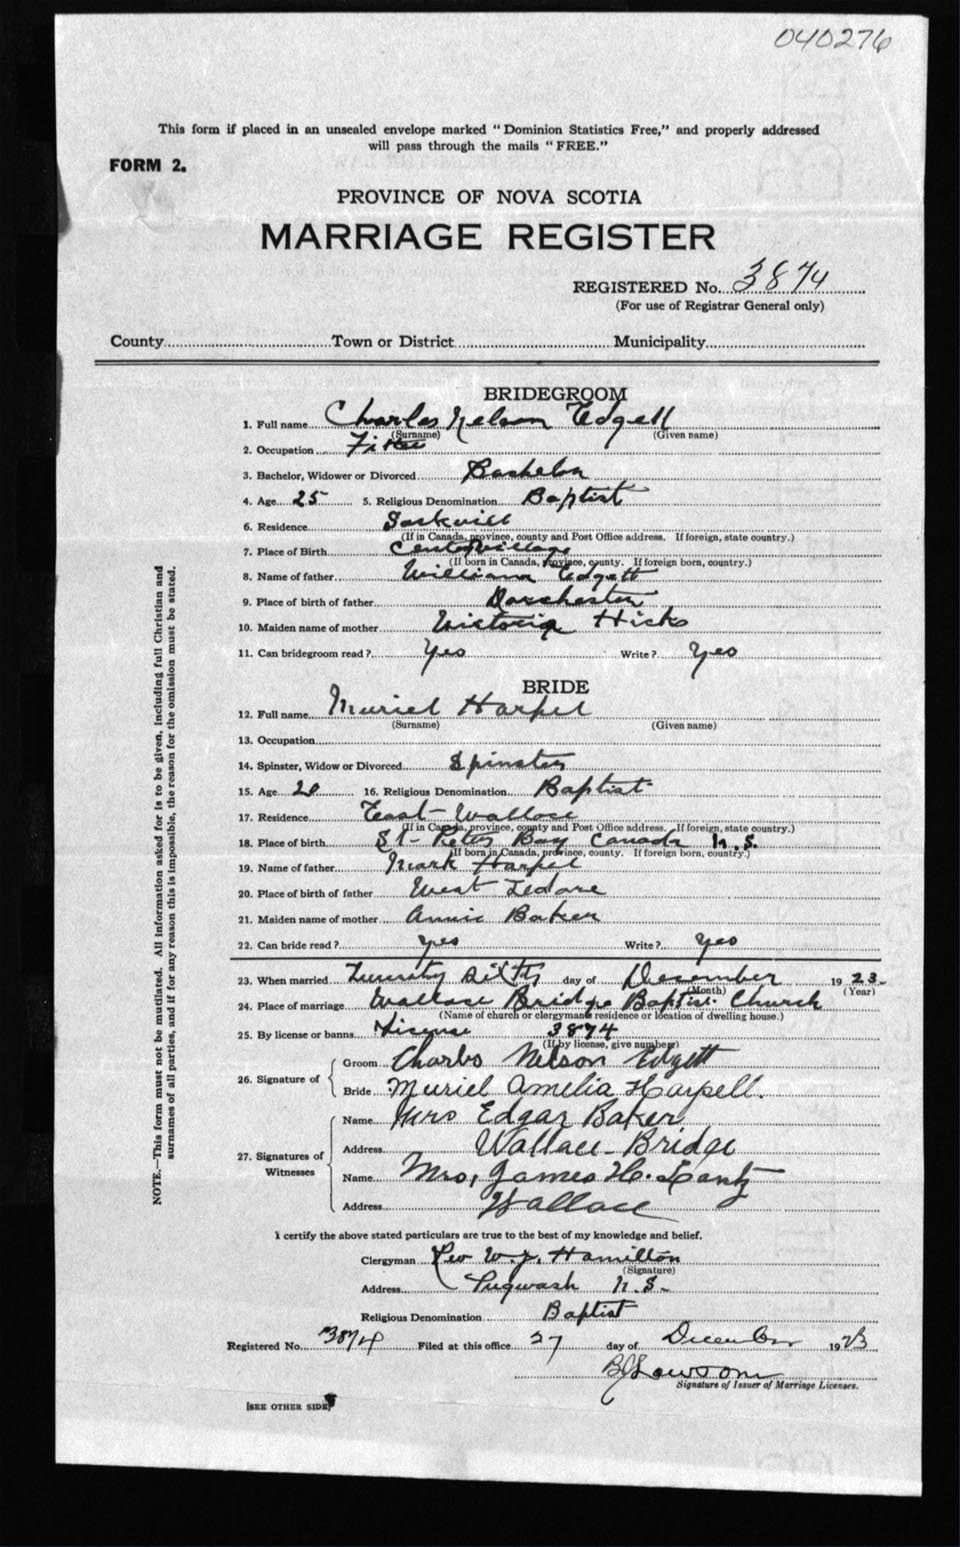 040276
This form if placed in an unsealed envelope marked "Dominion Statistics Free," and properly addressed
will pass through the mails "FREE."
FORM 2.
PROVINCE OF NOVA SCOTIA
MARRIAGE REGISTER
REGISTERED No. 3874
(For use of Registrar General only)
County Town or District Municipality
BRIDEGROOM
1. Full name Charles Nelson Edgett
(Surname) (Given name)
2. Occupation
3. Bachelor, Widower or Divorced Bachelor
4. Age 25 5. Religious Denomination Baptist
6. Residence Sackvill
(If in Canada, province, county and Post Office address. If foreign, state country.)
7. Place of Birth Centervillage
(If born in Canada, province, county. If foreign born, country.)
8. Name of father William Edgett
9. Place of birth of father Dorchester
10. Maiden name of mother Victoria Hicks
11. Can bridegroom read? Yes Write? Yes
BRIDE
12. Full name Muriel Harpel
(Surname) (Given name)
13. Occupation
14. Spinster, Widow or Divorced Spinster
15. Age 20 16. Religious Denomination Baptist
17. Residence East Wallace
(If in Canada, province, county and Post Office address. If foreign, state country.)
18. Place of birth St Peters Bay Canada N.S.
(If born in Canada, province, county. If foreign born, country.)
19. Name of father Mark Harpel
20. Place of birth of father West
21. Maiden name of mother Annie Baker
22. Can bride read? yes Write? yes
23. When married Twenty Sixth day of December 1923
(Month) (Year)
24. Place of marriage Wallace Bridge Baptist Church
(Name of church or clergymans residence or location of dwelling house.)
25. By license or banns License 3874
(If by license, give number)
26. Signature of Groom Charles Nelson Edgett
Bride Muriel Amelia Harpell.
27. Signatures of Witnesses Name Mrs Edgar Baker
Address Wallace-Bridge
Name Mrs, James H. Lantz
Address Wallace
I certify the above stated particulars are true to the best of my knowledge and belief.
Clergyman Rev W.J. Hamilton
(Signature)
Address Pugwash N.S.
Religious Denomination Baptist
Registered No. 3874 Filed at this office 27 day of December 1923
Lawson
Signature of Issuer of Marriage Licenses.
[SEE OTHER SIDE]
NOTE.—This form must not be mutilated. All information asked for is to be given, including full Christian and
surnames of all parties, and if for any reason this is impossible, the reason for the omission must be stated.